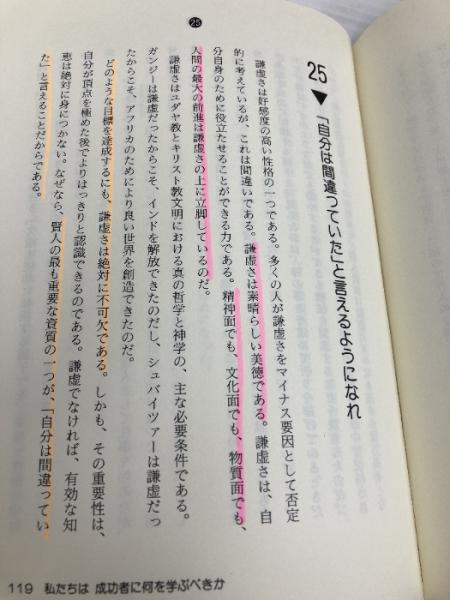 25
25▼「自分は間違っていた」と言えるようになれ
謙虚さは好感度の高い性格の一つである。多くの人が謙虚さをマイナス要因として否定
的に考えているが、これは間違いである。謙虚さは素晴らしい美徳である。謙虚さは、自
分自身のために役立たせることができる力である。精神面でも、文化面でも、物質面でも、
人間の最大の前進は謙虚さの上に立脚しているのだ。
謙虚さはユダヤ教とキリスト教文明における真の哲学と神学の、主な必要条件である。
ガンジーは謙虚だったからこそ、インドを解放できたのだし、シュバイツァーは謙虚だっ
たからこそ、アフリカのためにより良い世界を創造できたのだ。
どのような目標を達成するにも、謙虚さは絶対に不可欠である。しかも、その重要性は、
自分が頂点を極めた後でよりはっきりと認識できるのである。謙虚でなければ、有効な知
恵は絶対に身につかない。なぜなら、賢人の最も重要な資質の一つが、「自分は間違ってい
た」と言えることだからである。
119 私たちは 成功者に何を学ぶべきか